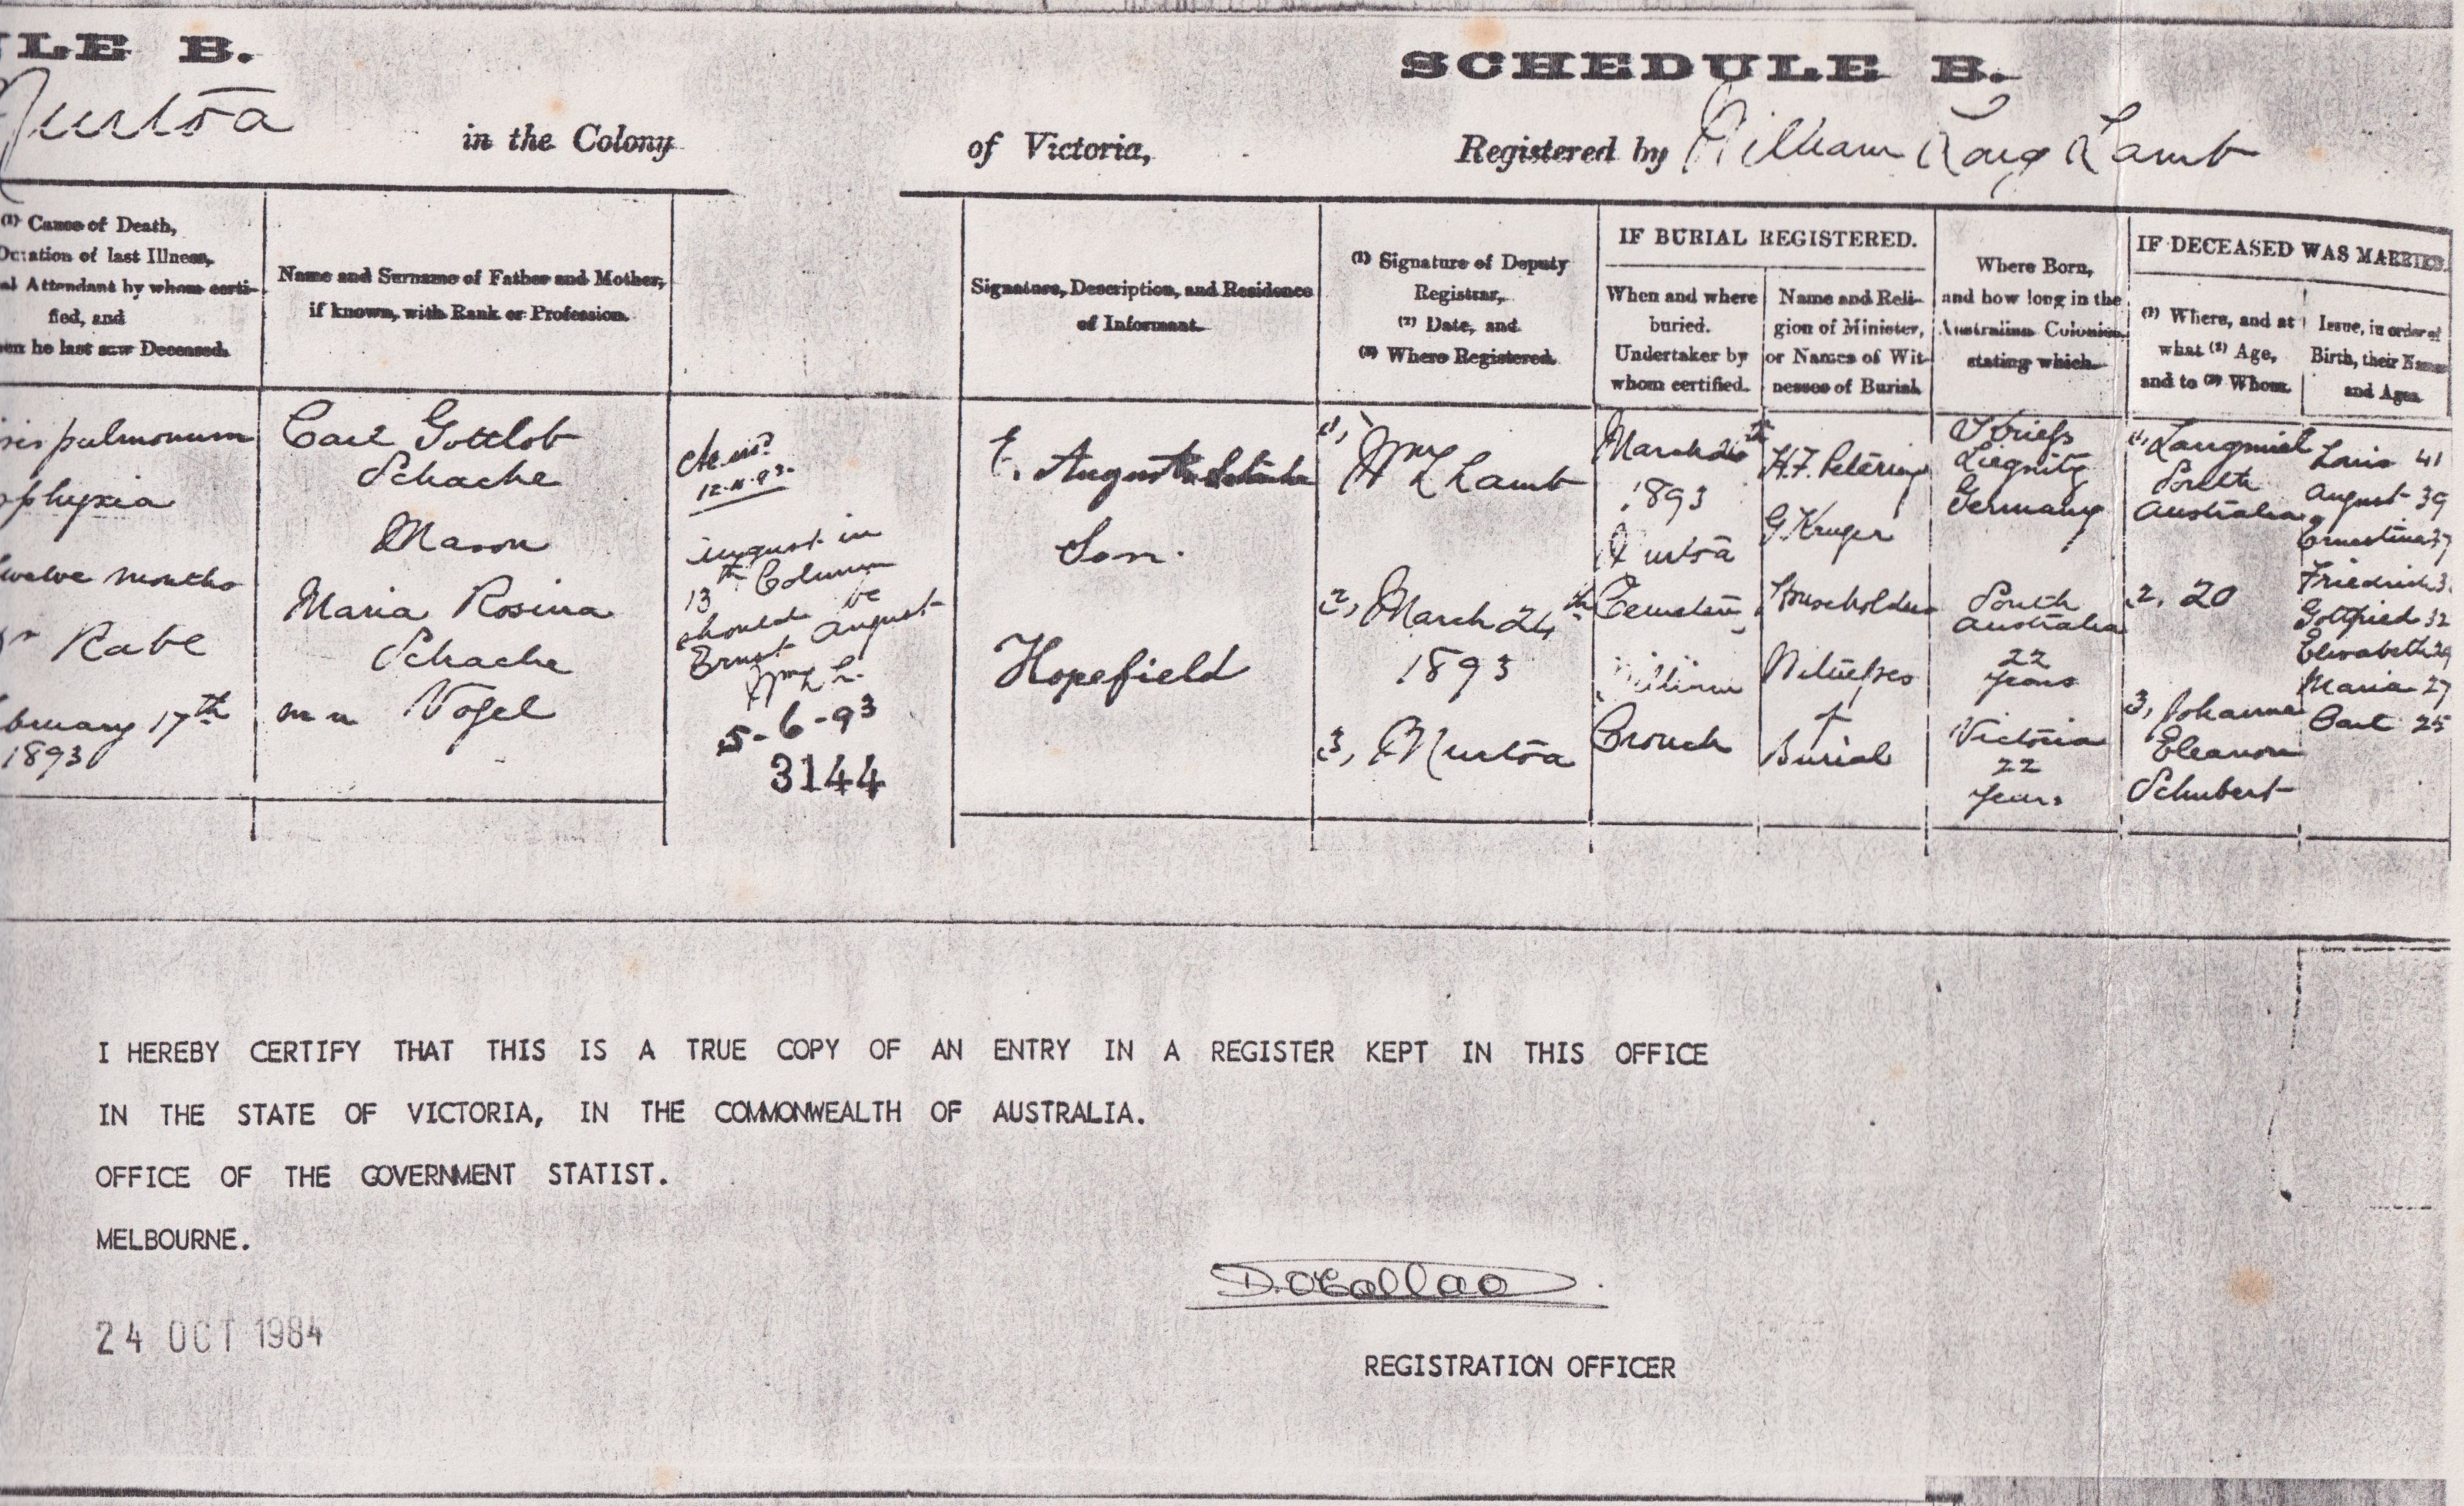 LE B.
SCHEDULE B.
Murtoa
in the Colony
of Victoria,
Registered by William Lamb
(1) Cause of Death,
Duration of last Illness,
al Attendant by whom certi-
fied, and
en he last saw Deceased.
pulmonum
phyxia
twelve months
Dr Rabe
bruary 17th
1893
Name and Surname of Father and Mother,
if known, with Rank or Profession.
Carl Gottlob
Schache
Mason
Maria Rosina
Schache
m n Vogel
12.4.93.
august in
13th Column
should be
Ernst August
Wm L L.
5-6-93
3144
Signature, Description, and Residence
of Informant.
E. August Schache
Son.
Hopefield
(1) Signature of Deputy
Registrar,
(2) Date, and
(3) Where Registered.
1, Wm L Lamb
2, March 24th
1893
3, Murtoa
IF BURIAL REGISTERED.
When and where
buried.
Undertaker by
whom certified.
March
1893
Murtoa
Cemetery
William
Crouch
Name and Reli-
gion of Minister,
or Names of Wit-
nesses of Burial.
H.F. Petering
G Kruger
Householders
Witnesses
of
Burial
Where Born,
and how long in the
Australian Colonies,
stating which.
Liegnitz
Germany
South
Australia
22
years
Victoria
22
years
IF DECEASED WAS MARRIED.
(1) Where, and at
what (2) Age,
and to (3) Whom.
1, Langmeil
South
Australia
2, 20
3, Johanne
Eleanore
Schubert
Issue, in order of
Birth, their Names
and Ages.
Louis 41
August 39
Ernestina 37
Friedrich 3
Gottfried 32
Elisabeth 29
Maria 27
Carl 25
I HEREBY CERTIFY THAT THIS IS A TRUE COPY OF AN ENTRY IN A REGISTER KEPT IN THIS OFFICE
IN THE STATE OF VICTORIA, IN THE COMMONWEALTH OF AUSTRALIA.
OFFICE OF THE GOVERNMENT STATIST.
MELBOURNE.
24 OCT 1984
REGISTRATION OFFICER